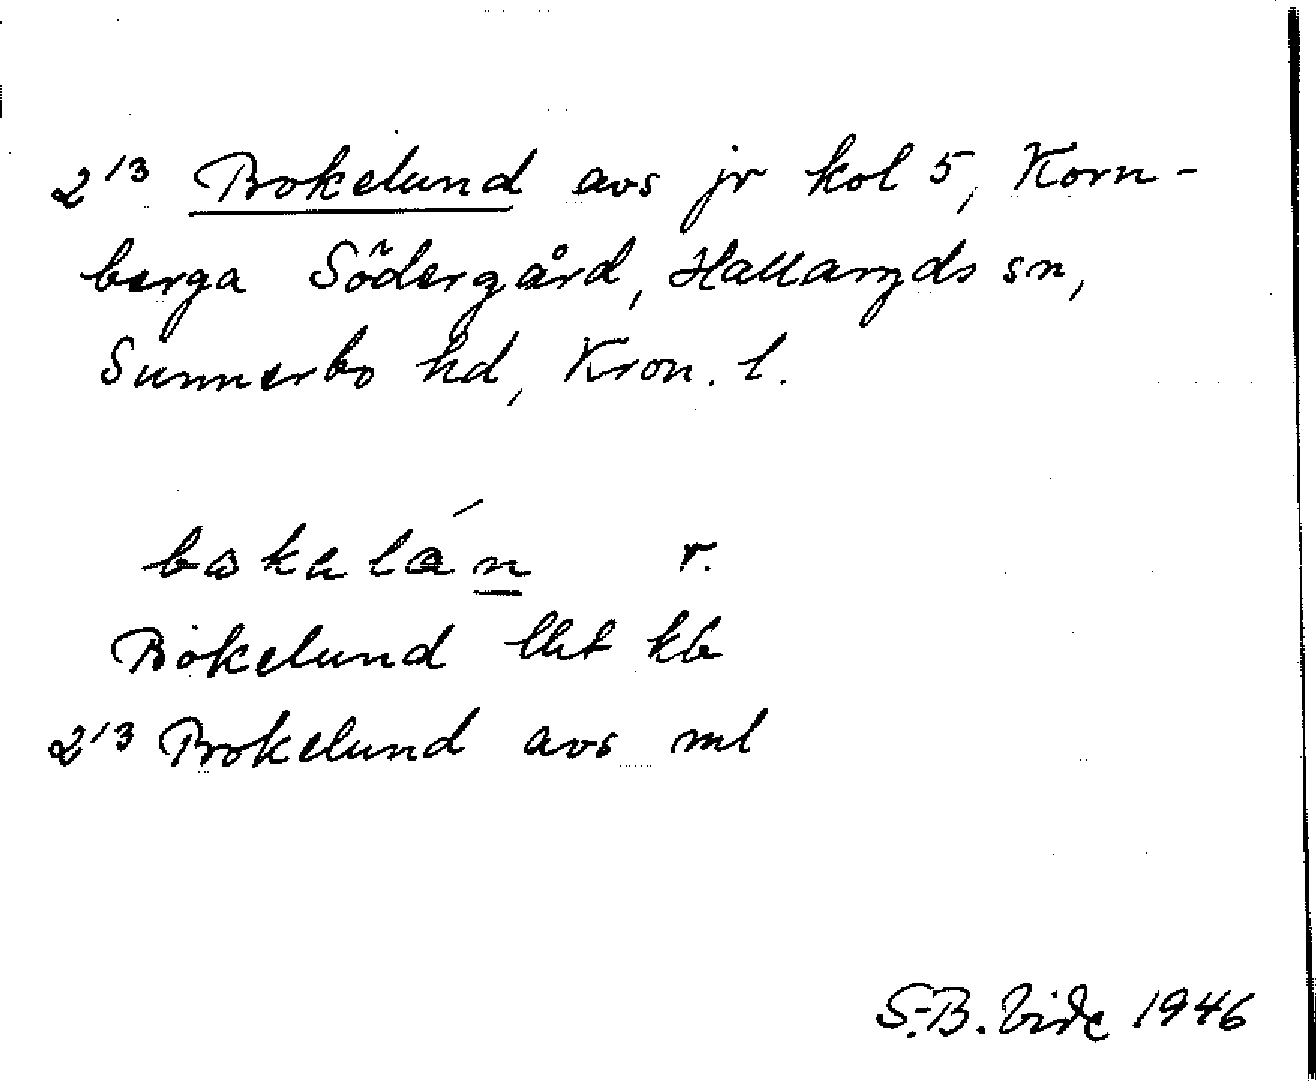 2¹³ Brokelund avs jr kol 5, Korn-
berga Södergård, Hallaryds sn,
Sunnerbo hd, Kron. l.
r.
Bokelund lht kb
2¹³ Brokelund avs ml
S.-B. Vide 1946